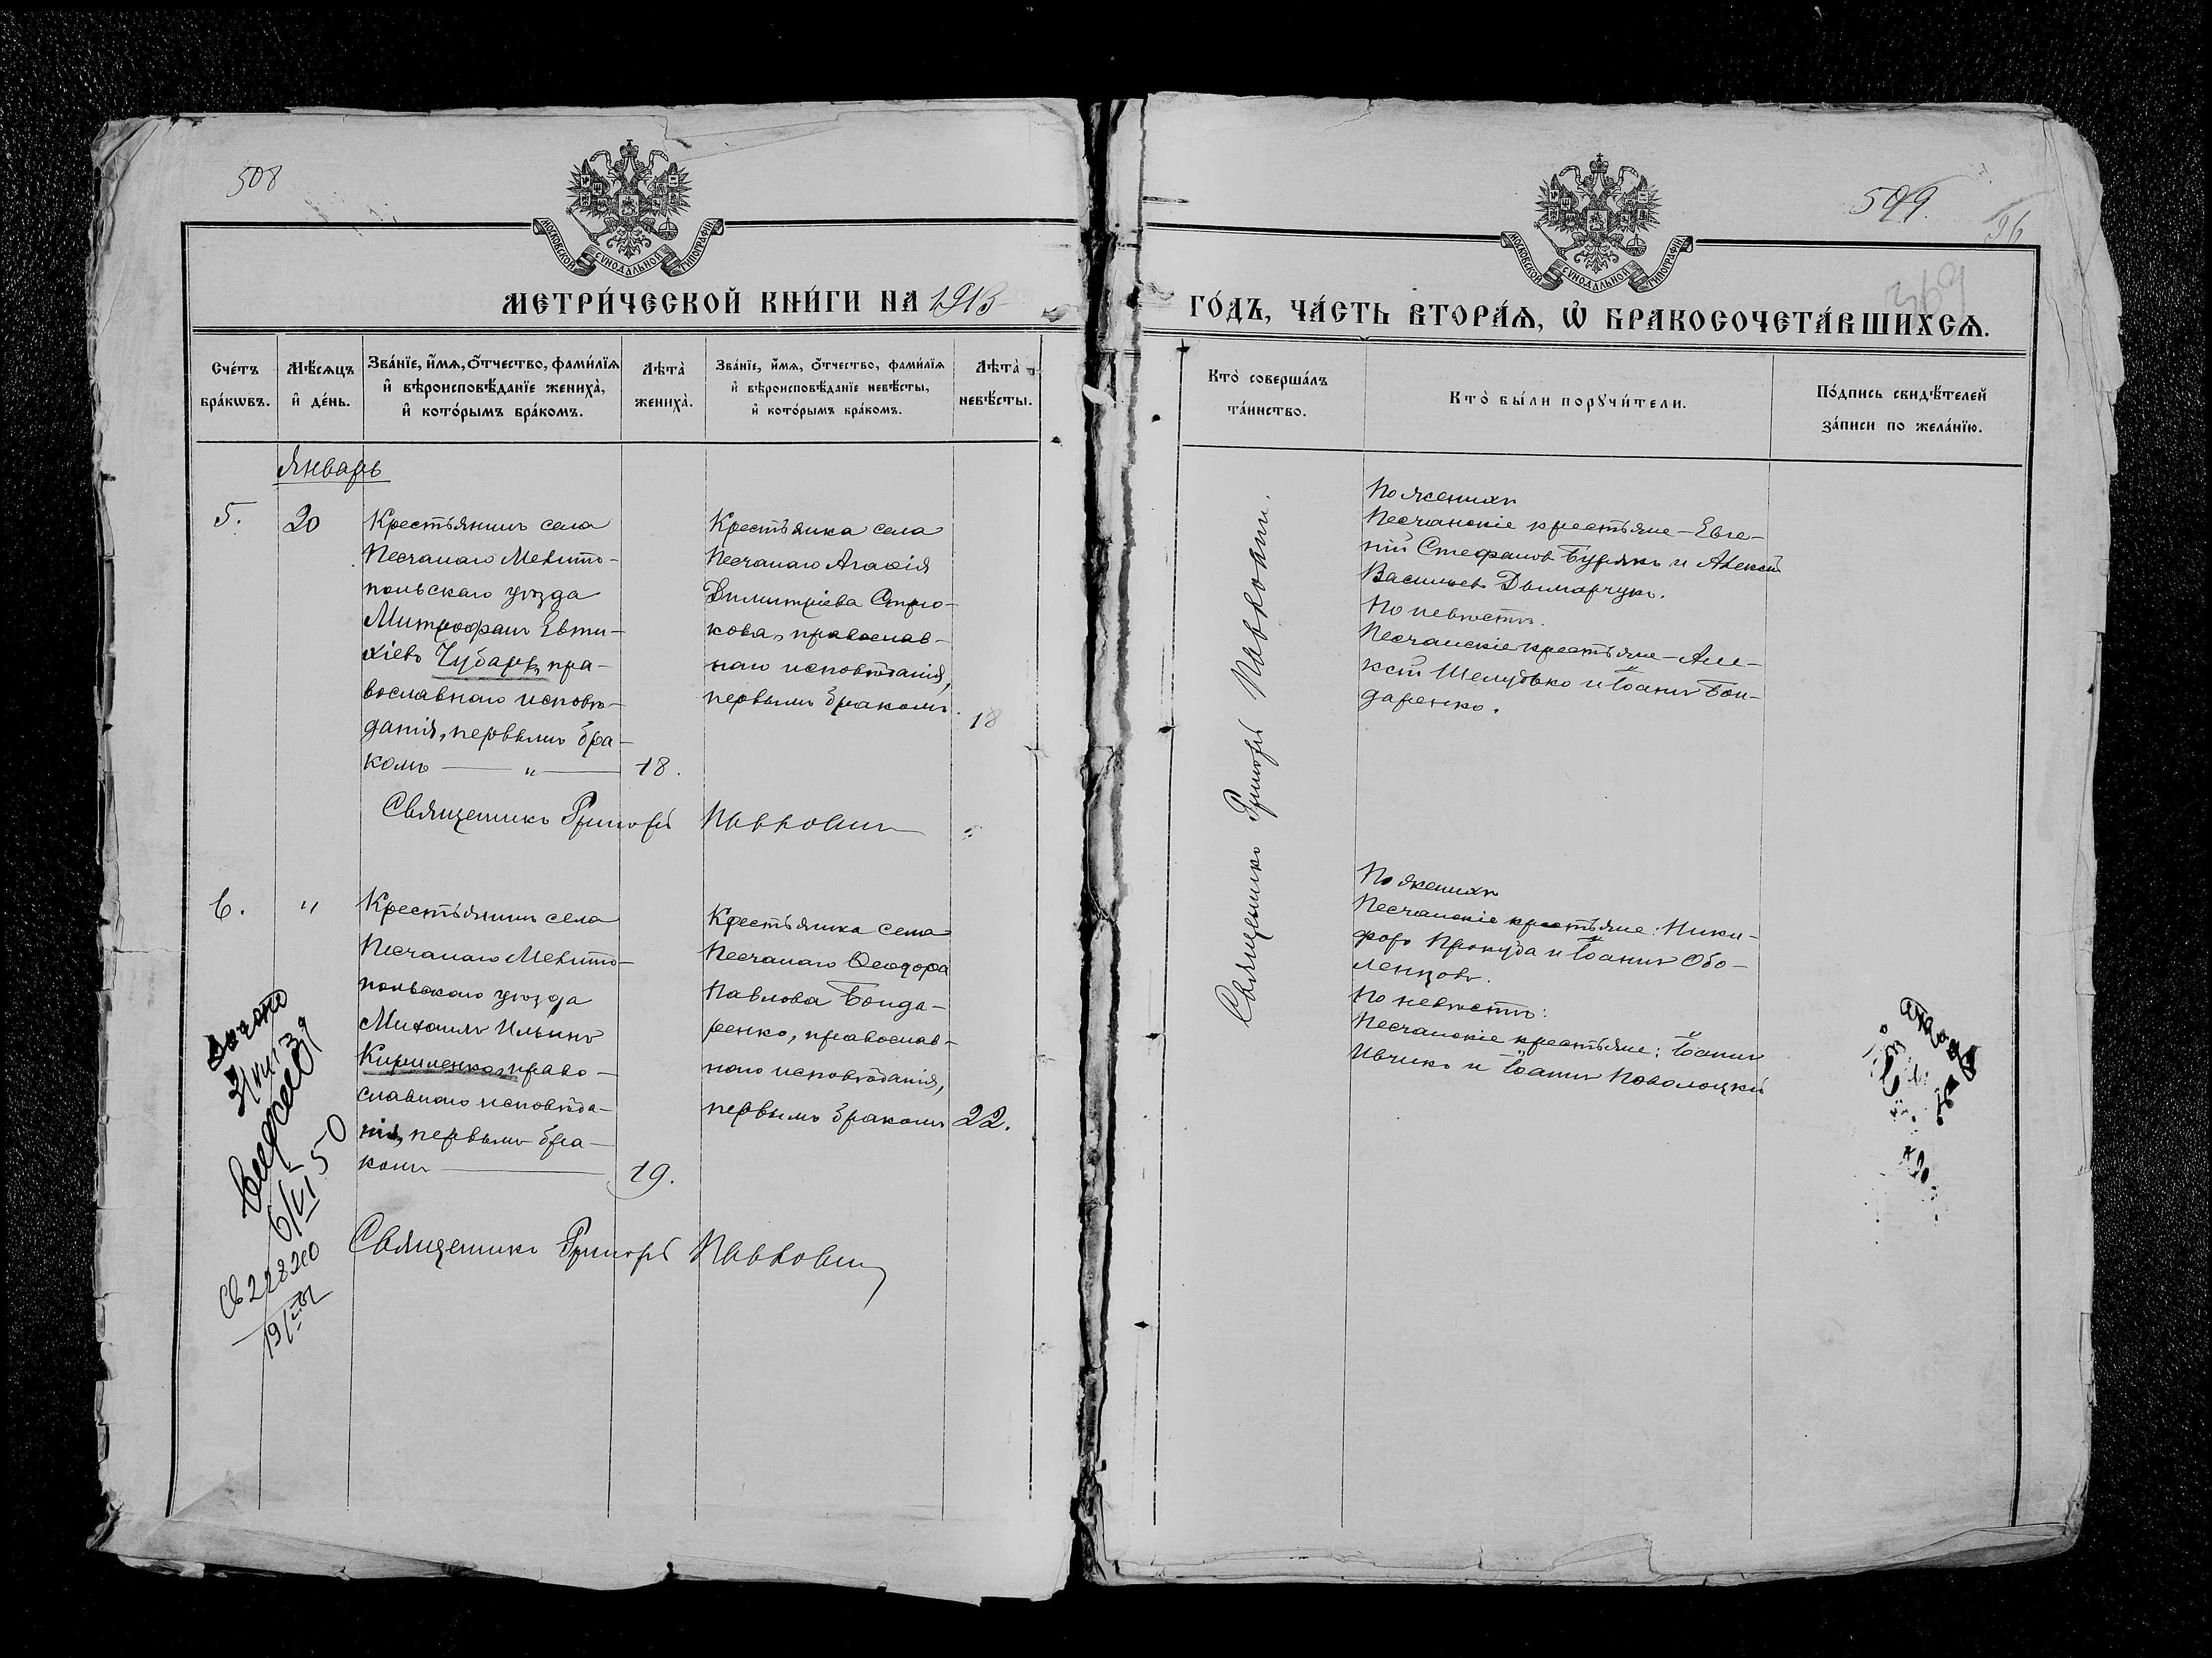 508
МОСКОВСКОЙ СУНОДАЛЬНОЙ ТИПОГРАФІИ
МЕТРИ́ЧЕСКОЙ КНИ́ГИ НА 1913
Сче́тъ бра́кѡвъ.
Мѣ́сѧцъ и҆ де́нь.
Зва́нїе, и҆́мѧ, ѻ҆́тчество, фами́лїѧ
и҆ вѣроисповѣ́данїе жениха̀,
и҆ кото́рымъ бра́комъ.
Лѣта̀ жениха̀.
Зва́нїе, и҆́мѧ, ѻ҆́тчество, фами́лїѧ
и҆ вѣроисповѣ́данїе невѣ́сты,
и҆ кото́рымъ бра́комъ.
Лѣта̀ невѣ́сты.
Январь
5.
20
Крестьянинъ села
Песчанаго Мелито-
польскаго уѣзда
Митрофанъ Евти-
хіевъ Чубарь, пра-
вославнаго исповѣ-
данія, первымъ бра-
комъ — " — 18.
Крестьянка села
Песчанаго Агафія
Димитріева Стрю-
кова, православ-
наго исповѣданія,
первымъ бракомъ.
18
Священникъ Григорій Павловскій
6.
"
Крестьянинъ села
Песчанаго Мелито-
польскаго уѣзда
Михаилъ Ильинъ
Кириленко, право-
славнаго исповѣда-
нія, первымъ бра-
комъ — 19.
Крестьянка села
Песчанаго Ѳеодора
Павлова Бонда-
ренко, православ-
наго исповѣданія,
первымъ бракомъ 22.
6/VI 50
Священникъ Григорій
509.
96
369
МОСКОВСКОЙ СУНОДАЛЬНОЙ ТИПОГРАФІИ
ГО́ДЪ, ЧА́СТЬ ВТОРА́Ѧ, Ѡ҆ БРАКОСОЧЕТА́ВШИХСѦ.
Кто̀ соверша́лъ
та́инство.
Кто̀ бы́ли порꙋчи́тели.
По́дпись свидѣ́телей
за́писи по жела́нїю.
Священникъ Григорій
По женихѣ
Песчанскіе крестьяне – Евге-
ній Стефановъ Бурякъ и Алексѣй
Васильевъ Дымарчукъ.
По невѣстѣ.
Песчанскіе крестьяне – Але-
ксѣй Шелудько и Іоаннъ Бон-
даренко.
По женихѣ
Песчанскіе крестьяне: Ники-
форъ Прокуда и Іоаннъ Обо-
ленцовъ.
По невѣстѣ:
Песчанскіе крестьяне: Іоаннъ
Ивчикъ и Іоаннъ Поволоцкій